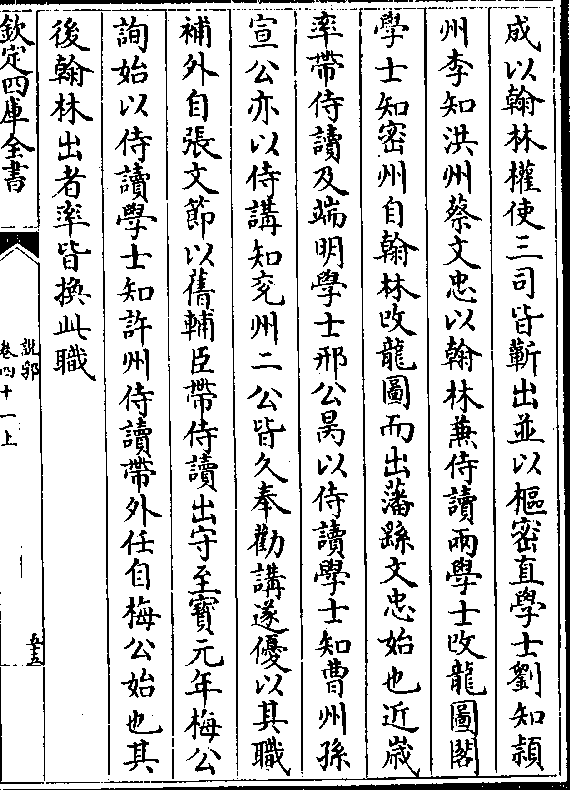 成以翰林權使三司皆蘄出並以樞密直學士劉知頴
州李知洪州蔡文忠以翰林蒹侍讀兩學士改龍圖閣
學士知密州自翰林改龍圖而出藩繇文忠始也近嵗
率帶侍讀及端明學士邢公昺以侍讀學士知曹州孫
宣公亦以侍講知兖州二公皆久奉勸講遂優以其職
補外自張文節以舊輔臣帶侍讀出守至寳元年梅公
詢始以侍讀學士知許州侍讀帶外任自梅公始也其
後翰林出者率皆換此職
欽定四庫全書
説郛
卷四十一上
五五